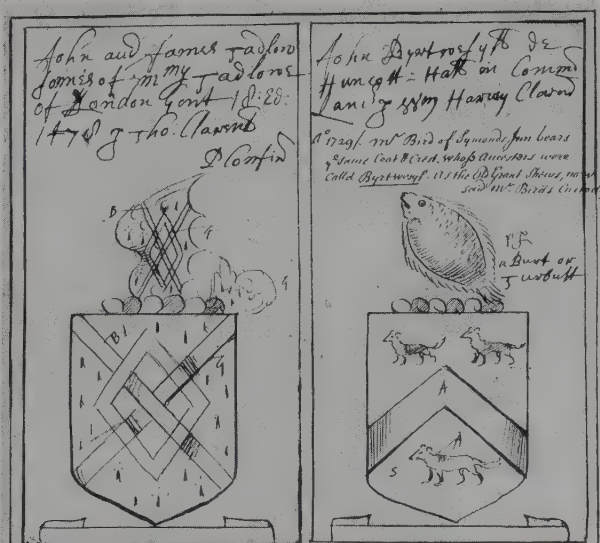 John and James Tadlow
sonnes of Tadlowe
of London Gent 18: Ed:
1478 p Tho: Clarent
John Byrtwesyll de
Huncott = Hall in Comm
Lanc p Wm Harvey Claren
Ao 1729/. Mr. Bird of Symonds Inn bears
ye same Coat & Crest, whose Ancestors were
Called Byrtwesyl. as the Old Grant Shews, now in
said Mr. Birds Custod
B
G
G
a Burt or
Turbutt
B
G
A
A
S